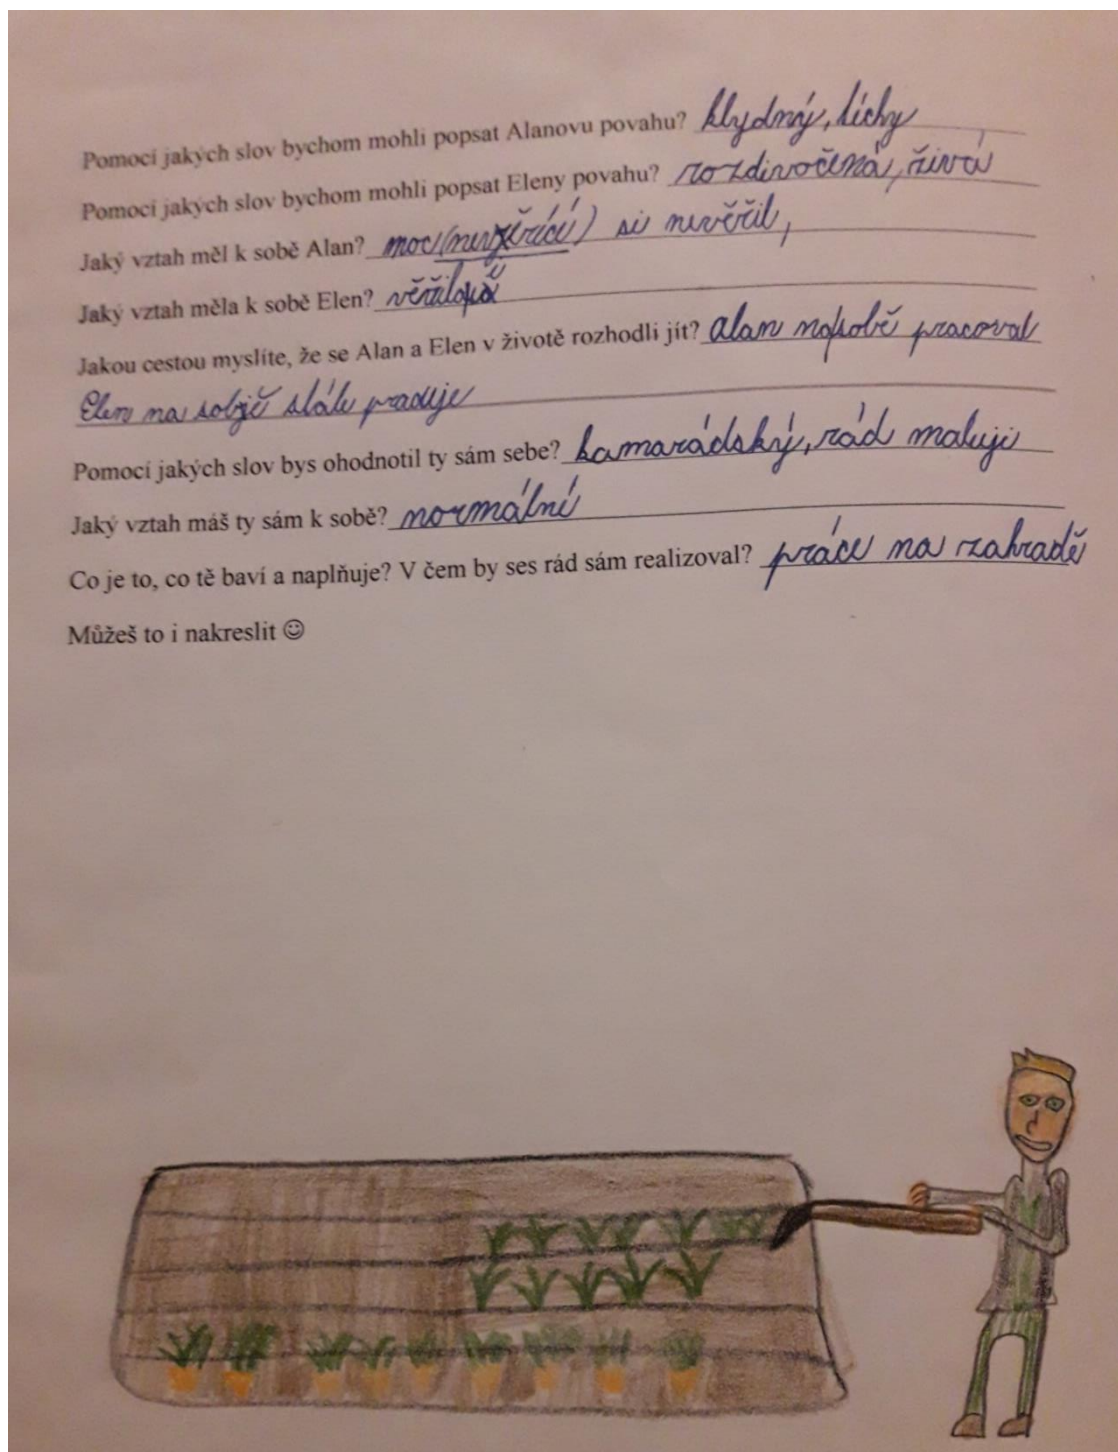 Pomocí jakých slov bychom mohli popsat Alanovu povahu? klydný, tichy
Pomocí jakých slov bychom mohli popsat Eleny povahu? rozdivočená, živá
Jaký vztah měl k sobě Alan? moc si nevěřil,
Jaký vztah měla k sobě Elen? věřila
Jakou cestou myslíte, že se Alan a Elen v životě rozhodli jít? Alan na sobě pracoval
Elen na sobě stále pracuje
Pomocí jakých slov bys ohodnotil ty sám sebe? kamarádský, rád maluji
Jaký vztah máš ty sám k sobě? normální
Co je to, co tě baví a naplňuje? V čem by ses rád sám realizoval? práce na zahradě
Můžeš to i nakreslit ☺